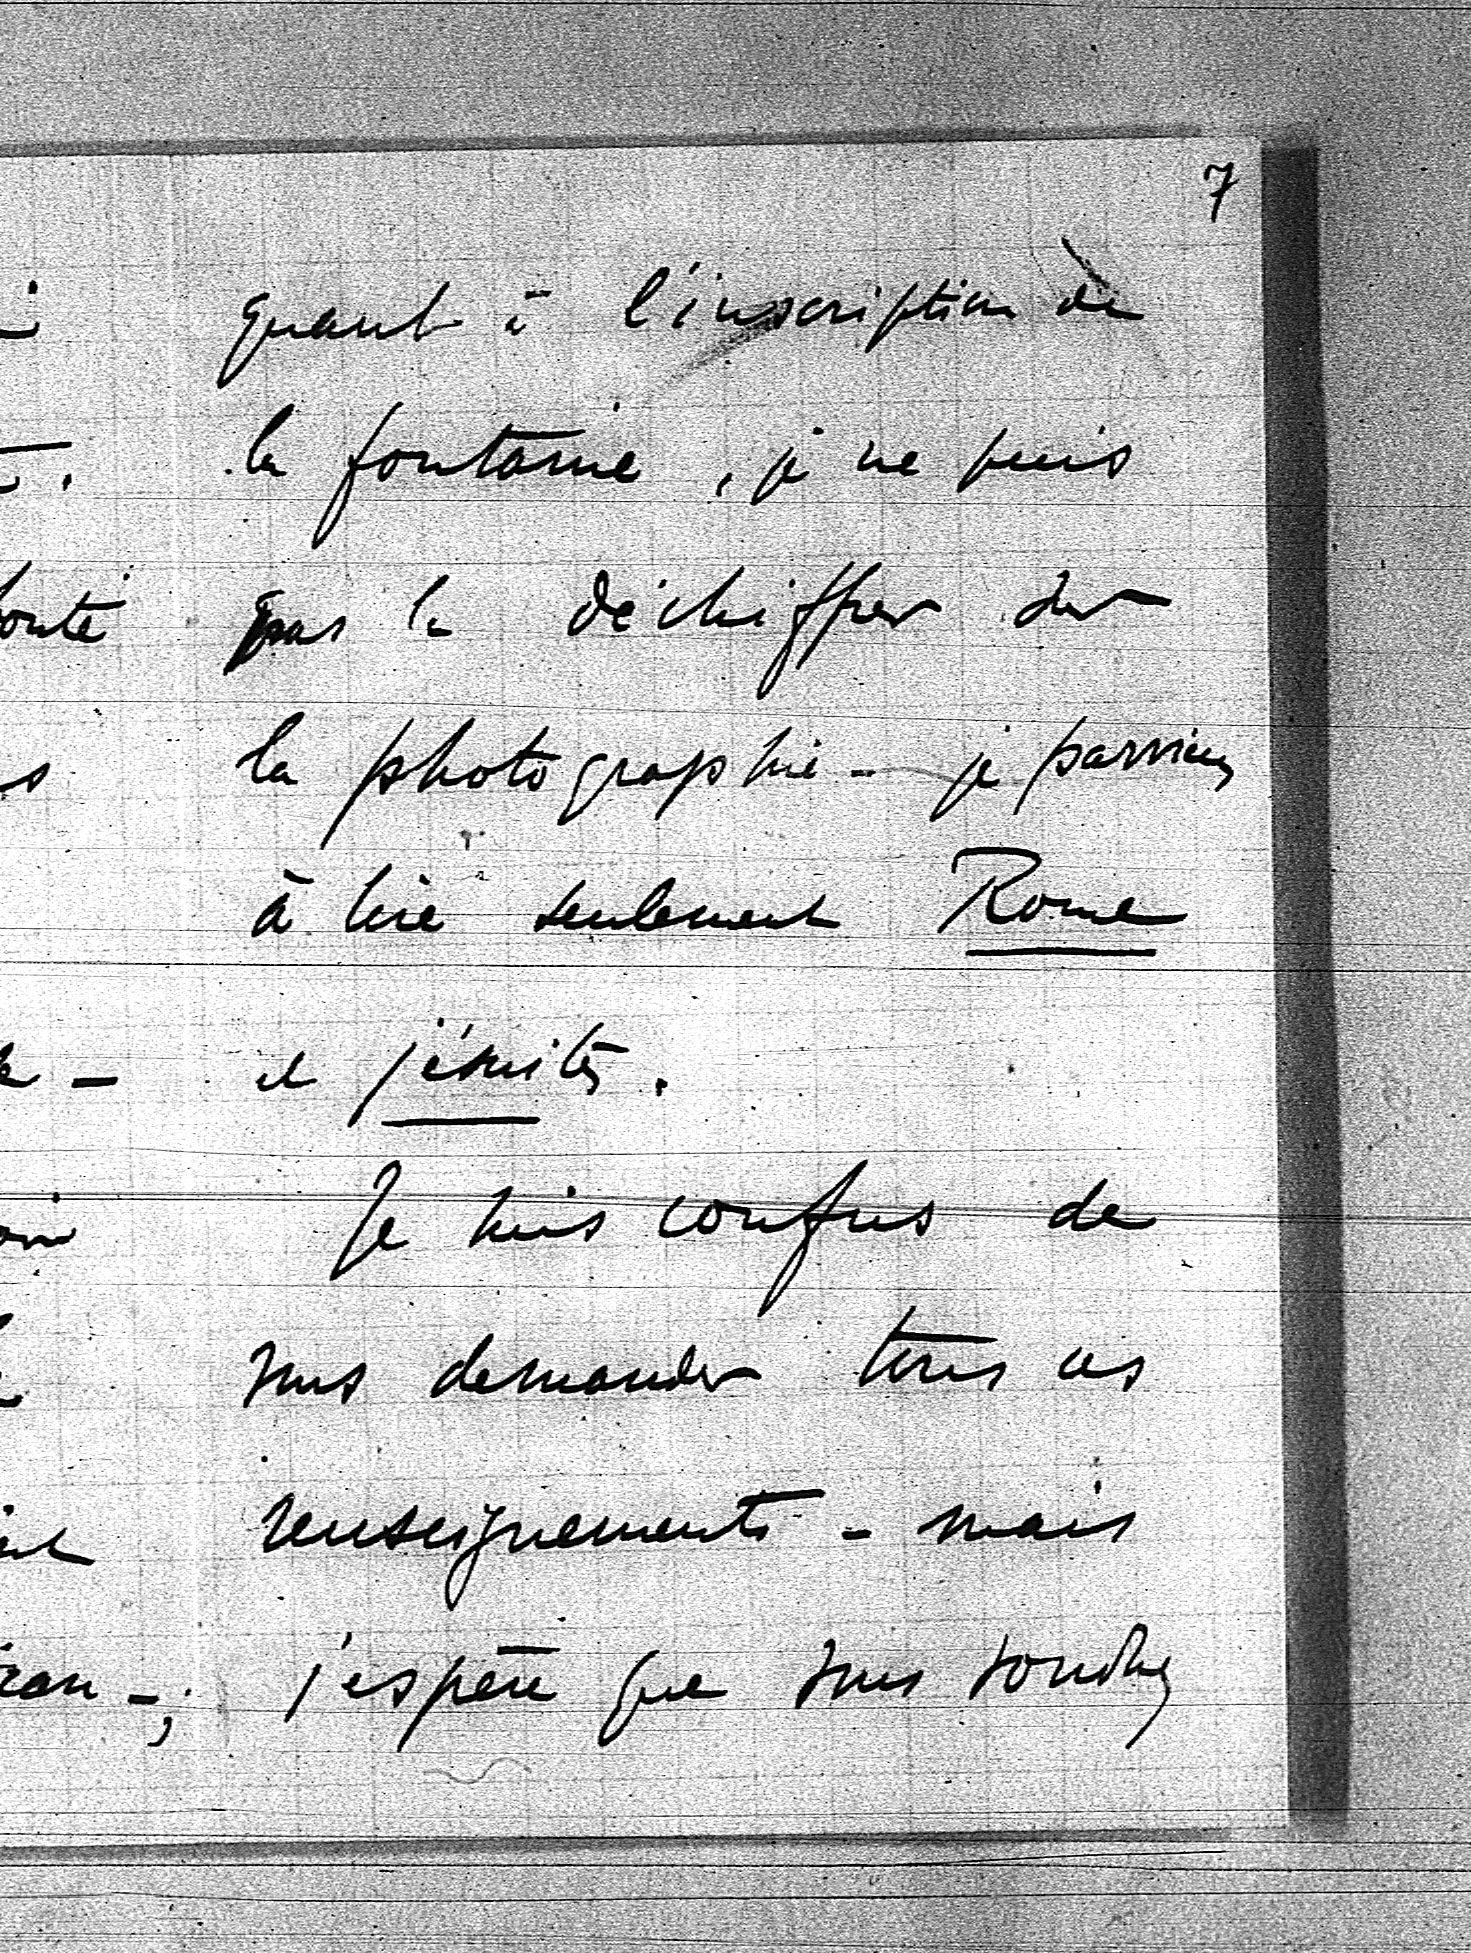 7
quant à l'inscription de
la fontaine, je ne puis
pas la déchiffrer sur
la photographie - je parviens
à lire seulement Rome
et jésuites.
Je suis confus de
vous demander tous ces
renseignements - mais
j'espère que vous voudrez